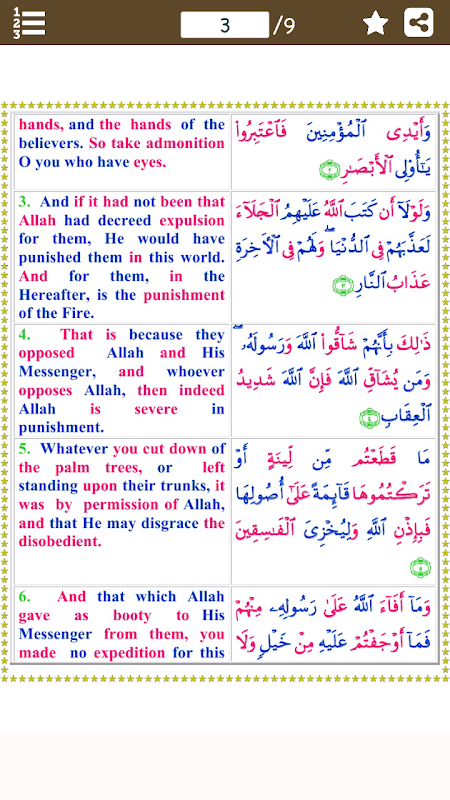 1
2
3
3
/9
hands, and the hands of the
believers. So take admonition
O you who have eyes.
وَأَيْدِى ٱلْمُؤْمِنِينَ فَٱعْتَبِرُوا۟
يَـٰٓأُو۟لِى ٱلْأَبْصَـٰرِ ٢
3. And if it had not been that
Allah had decreed expulsion
for them, He would have
punished them in this world.
And for them, in the
Hereafter, is the punishment
of the Fire.
وَلَوْلَآ أَن كَتَبَ ٱللَّهُ عَلَيْهِمُ ٱلْجَلَآءَ
لَعَذَّبَهُمْ فِى ٱلدُّنْيَا ۖ وَلَهُمْ فِى ٱلْـَٔاخِرَةِ
عَذَابُ ٱلنَّارِ ٣
4. That is because they
opposed Allah and His
Messenger, and whoever
opposes Allah, then indeed
Allah is severe in
punishment.
ذَٰلِكَ بِأَنَّهُمْ شَآقُّوا۟ ٱللَّهَ وَرَسُولَهُۥ ۖ
وَمَن يُشَآقِّ ٱللَّهَ فَإِنَّ ٱللَّهَ شَدِيدُ
ٱلْعِقَابِ ٤
5. Whatever you cut down of
the palm trees, or left
standing upon their trunks, it
was by permission of Allah,
and that He may disgrace the
disobedient.
مَا قَطَعْتُم مِّن لِّينَةٍ أَوْ
تَرَكْتُمُوهَا قَآئِمَةً عَلَىٰٓ أُصُولِهَا
فَبِإِذْنِ ٱللَّهِ وَلِيُخْزِىَ ٱلْفَـٰسِقِينَ
٥
6. And that which Allah
gave as booty to His
Messenger from them, you
made no expedition for this
وَمَآ أَفَآءَ ٱللَّهُ عَلَىٰ رَسُولِهِۦ مِنْهُمْ
فَمَآ أَوْجَفْتُمْ عَلَيْهِ مِنْ خَيْلٍ وَلَا